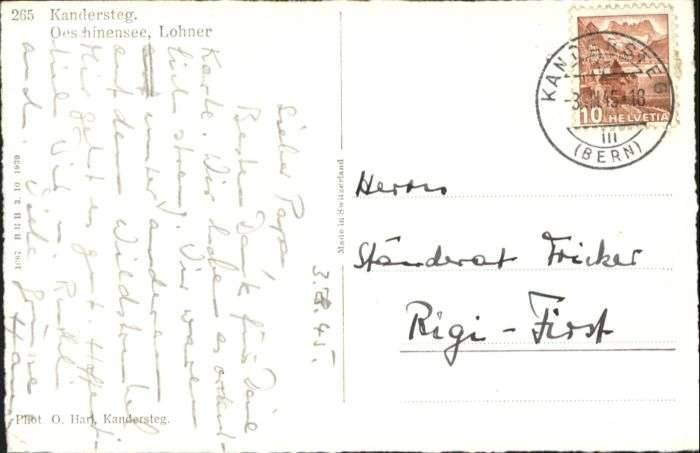 265 Kandersteg.
Oeschinensee, Lohner
Lieber Papa!
Besten Dank für Deine
Karte. Wir haben es ordent-
lich streng. Wir waren
unter anderem
auf dem Wildstrubel
Mir geht es gut. Hoffent-
lich Dir u. Ruedi
auch. Viele Grüsse
Hans
3.8.45.
1087 HHB 3. 10 1939
Phot. O. Hari, Kandersteg.
Made in Switzerland
KANDERSTEG
45-18
III
(BERN)
10 HELVETIA
Herrn
Ständerat Fricker
Rigi - First